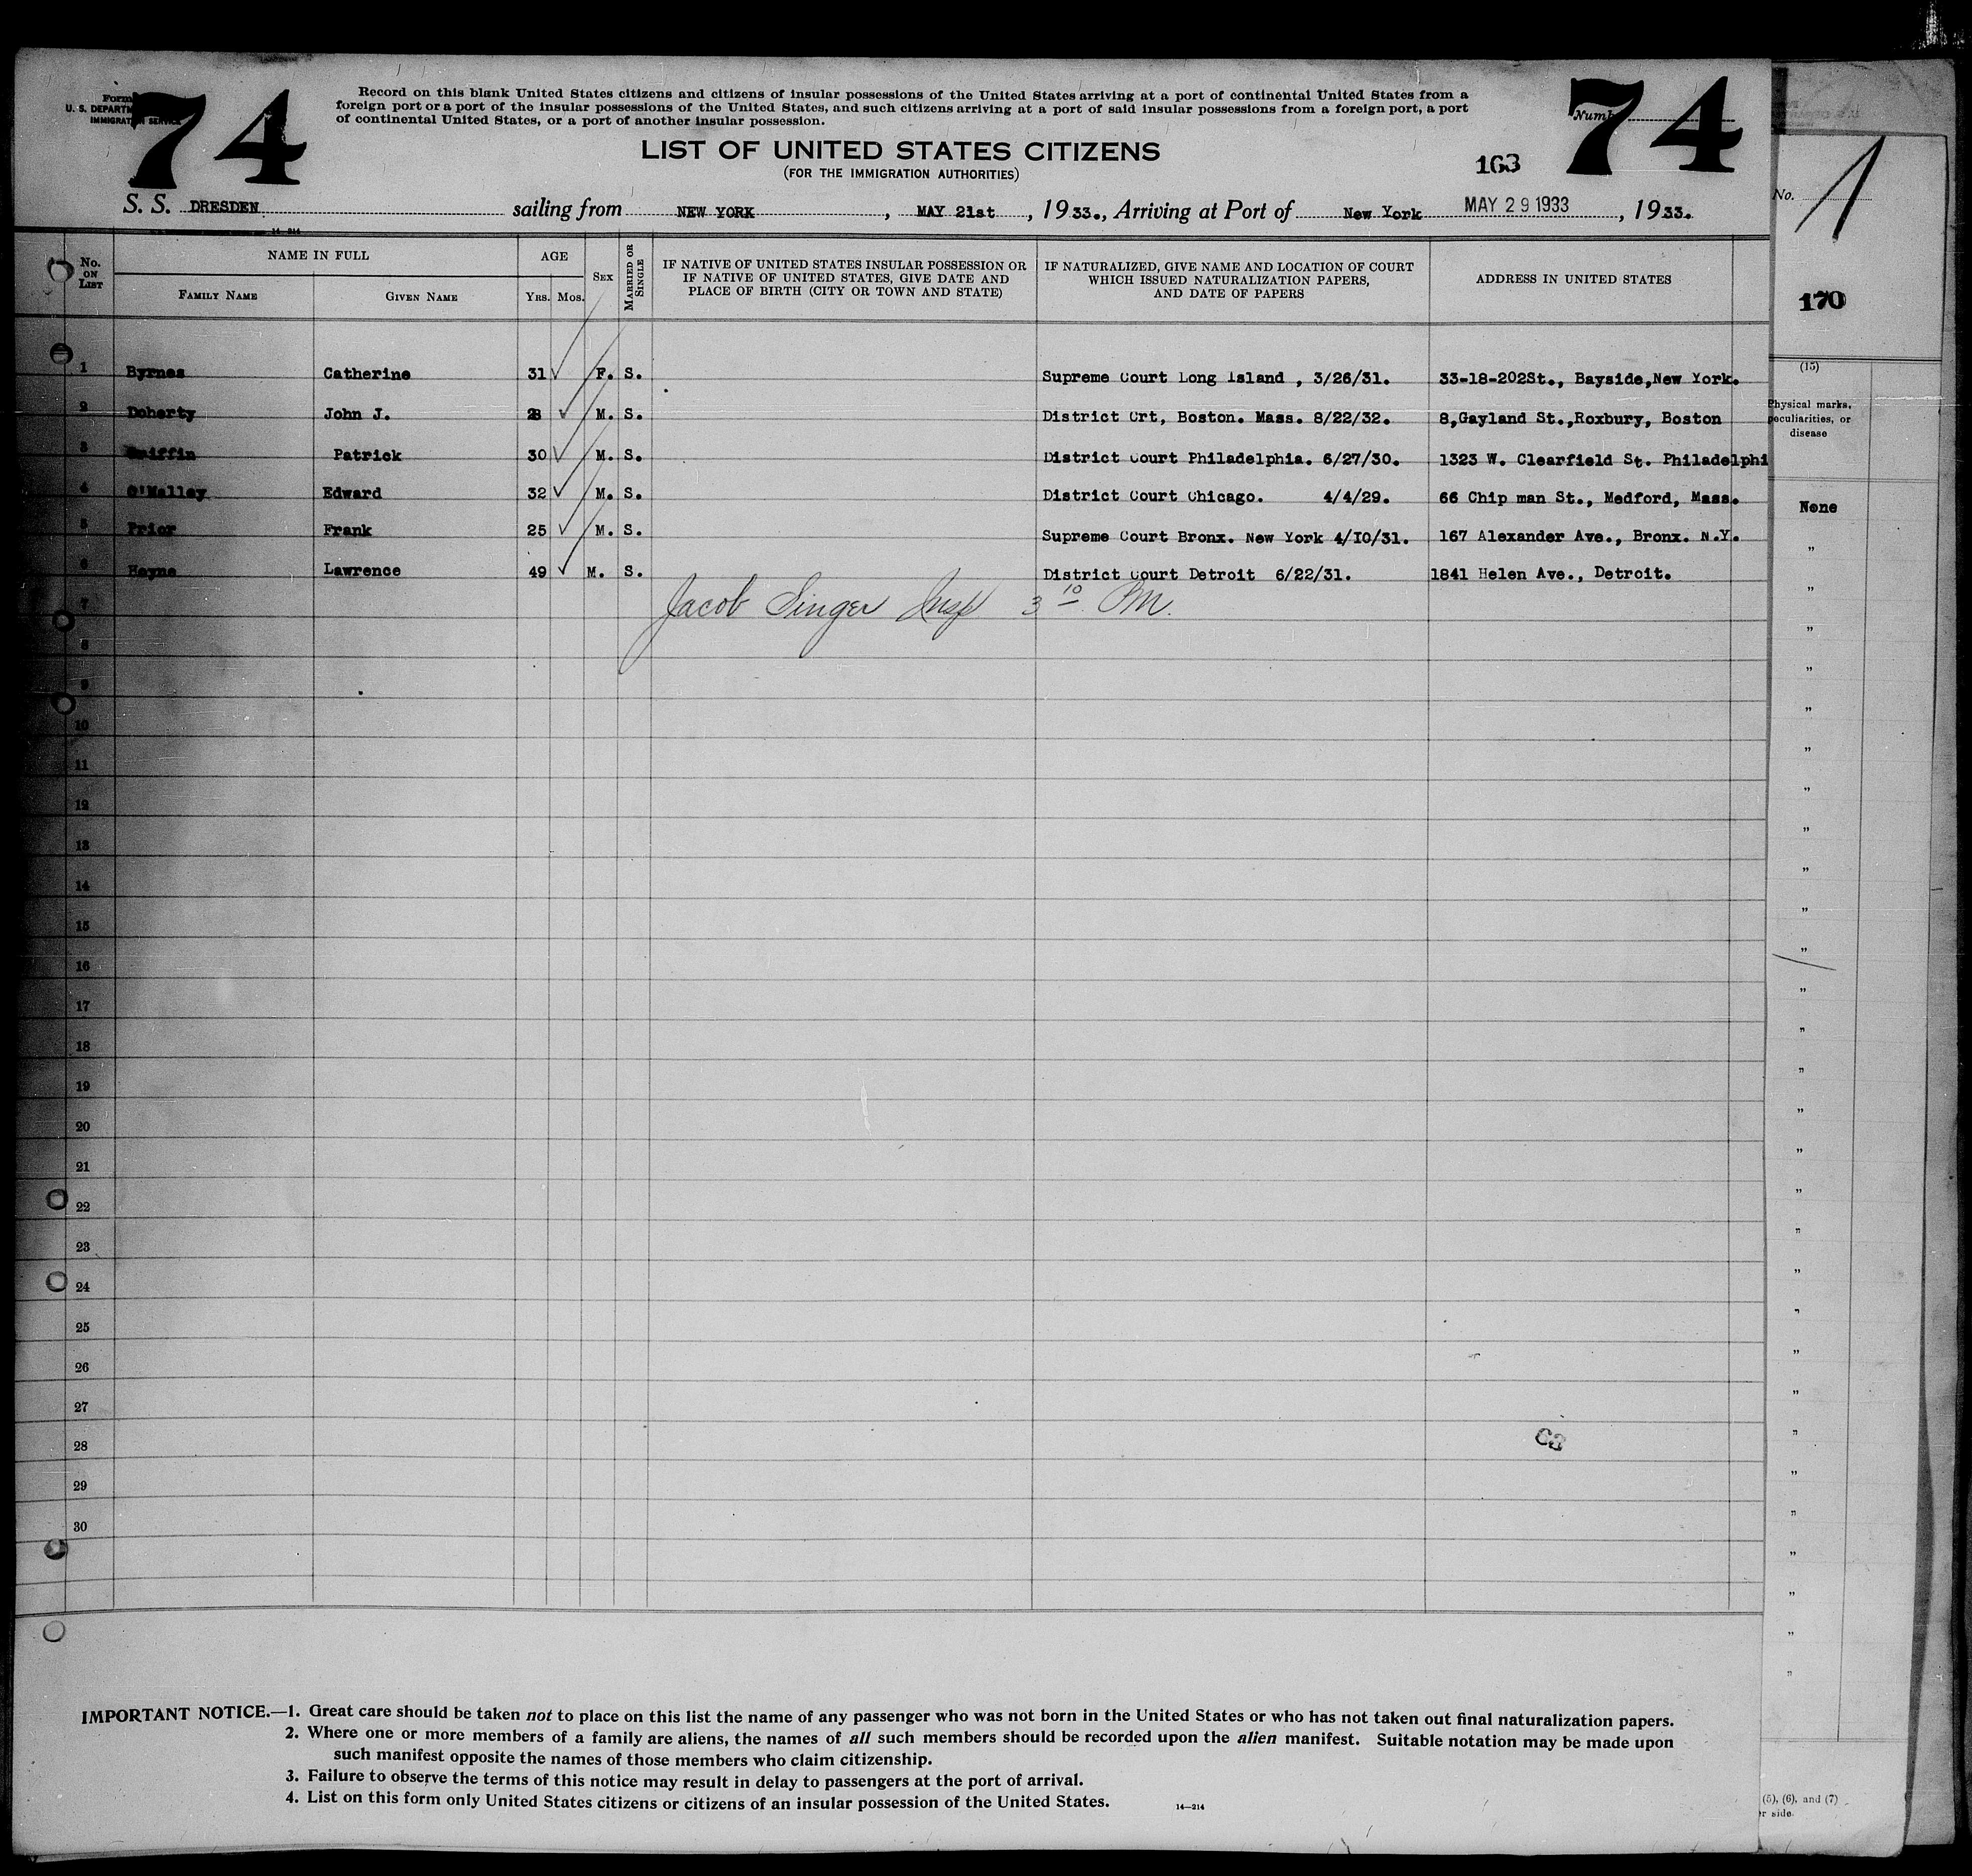 74
74
Form
U. S. DEPARTM
IMMIGRATION SERVICE
Record on this blank United States citizens and citizens of insular possessions of the United States arriving at a port of continental United States from a
foreign port or a port of the insular possessions of the United States, and such citizens arriving at a port of said insular possessions from a foreign port, a port
of continental United States, or a port of another insular possession.
LIST OF UNITED STATES CITIZENS
(FOR THE IMMIGRATION AUTHORITIES)
163
S. S. DRESDEN sailing from NEW YORK, MAY 21st, 1933., Arriving at Port of New York MAY 29 1933, 1933.
No. ON LIST
NAME IN FULL
FAMILY NAME
GIVEN NAME
AGE
YRS. MOS.
SEX
MARRIED OR SINGLE
IF NATIVE OF UNITED STATES INSULAR POSSESSION OR
IF NATIVE OF UNITED STATES, GIVE DATE AND
PLACE OF BIRTH (CITY OR TOWN AND STATE)
IF NATURALIZED, GIVE NAME AND LOCATION OF COURT
WHICH ISSUED NATURALIZATION PAPERS,
AND DATE OF PAPERS
ADDRESS IN UNITED STATES
1 Byrnes Catherine 31 F. S. Supreme Court Long Island , 3/26/31. 33-18-202St., Bayside,New York.
2 Doherty John J. 28 M. S. District Crt, Boston. Mass. 8/22/32. 8,Gayland St.,Roxbury, Boston
3 Griffin Patrick 30 M. S. District Court Philadelphia. 6/27/30. 1323 W. Clearfield St. Philadelphi
4 O'Malley Edward 32 M. S. District Court Chicago. 4/4/29. 66 Chip man St., Medford, Mass.
5 Prior Frank 25 M. S. Supreme Court Bronx. New York 4/10/31. 167 Alexander Ave., Bronx. N.Y.
6 Heyne Lawrence 49 M. S. District Court Detroit 6/22/31. 1841 Helen Ave., Detroit.
7 Jacob Singer Insp 3 10 PM.
8
9
10
11
12
13
14
15
16
17
18
19
20
21
22
23
24
25
26
27
28
29
30
IMPORTANT NOTICE.—1. Great care should be taken not to place on this list the name of any passenger who was not born in the United States or who has not taken out final naturalization papers.
2. Where one or more members of a family are aliens, the names of all such members should be recorded upon the alien manifest. Suitable notation may be made upon
such manifest opposite the names of those members who claim citizenship.
3. Failure to observe the terms of this notice may result in delay to passengers at the port of arrival.
4. List on this form only United States citizens or citizens of an insular possession of the United States.
14—214
No. 1
170
(15)
Physical marks,
peculiarities, or
disease
None
"
"
"
"
"
"
"
"
"
"
"
"
"
"
"
"
"
"
"
"
"
"
"
"
"
"
"
"
"
(5), (6), and (7)
r side.